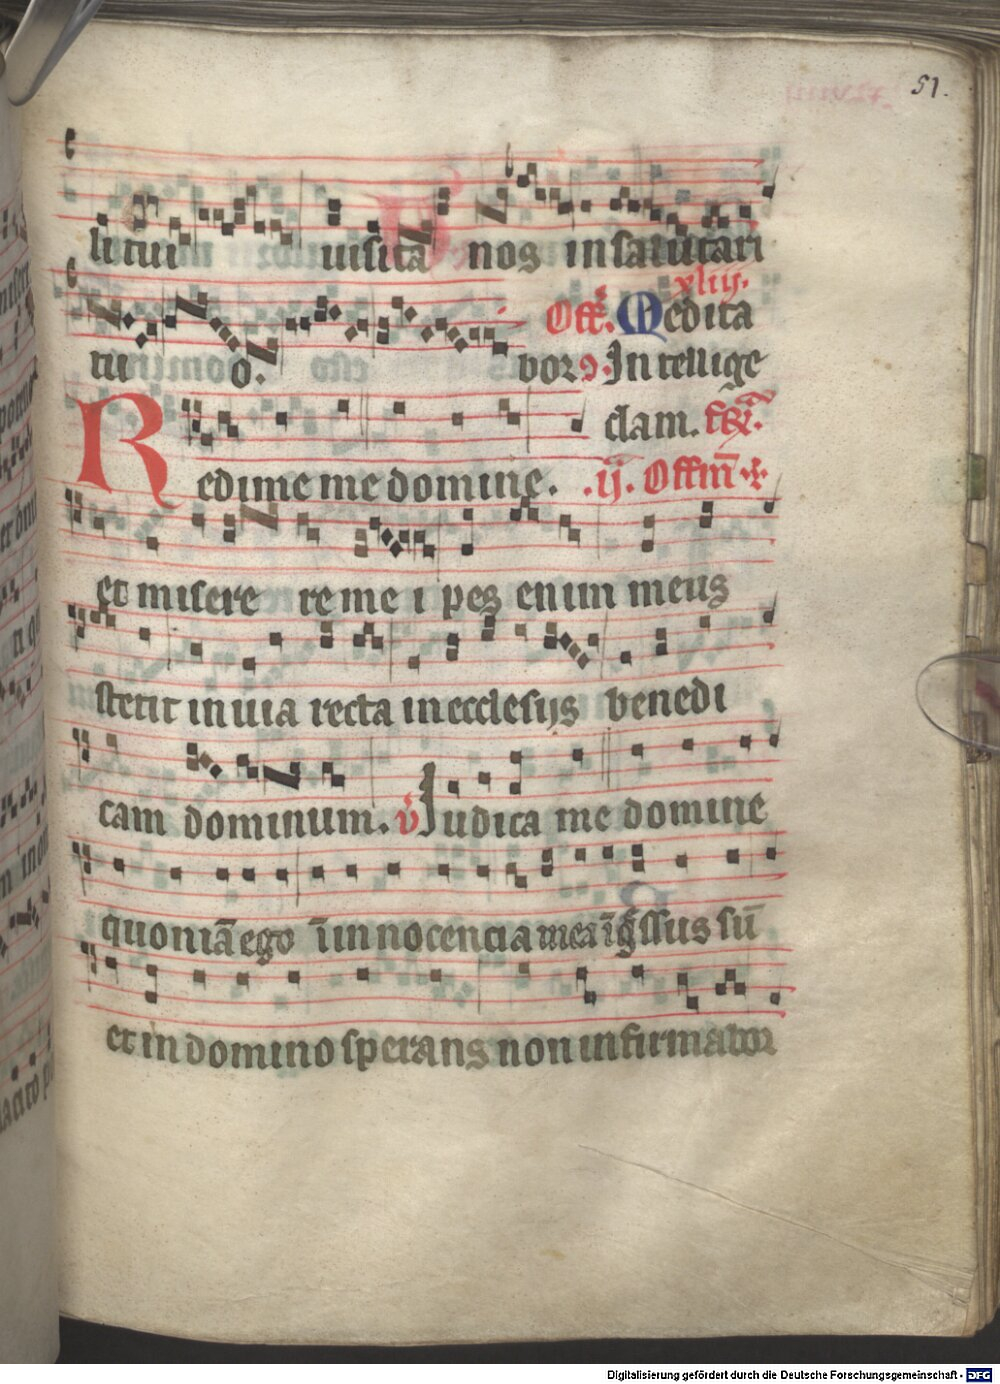 51.
li tui uisita nos in salutari
xliij.
Off. Medita
tu o. bor ꝯ. Intellige
clam. fr̄ia.
Redime me domine. .ij. Offm̄
et misere re me i pes enim meus
stetit in uia recta in ecclesijs benedi
cam dominum. v̄ Judica me domine
quoniā ego īnnocencia mea īgssus sū
et in domino sperans non infirmabor
Digitalisierung gefördert durch die Deutsche Forschungsgemeinschaft - DFG